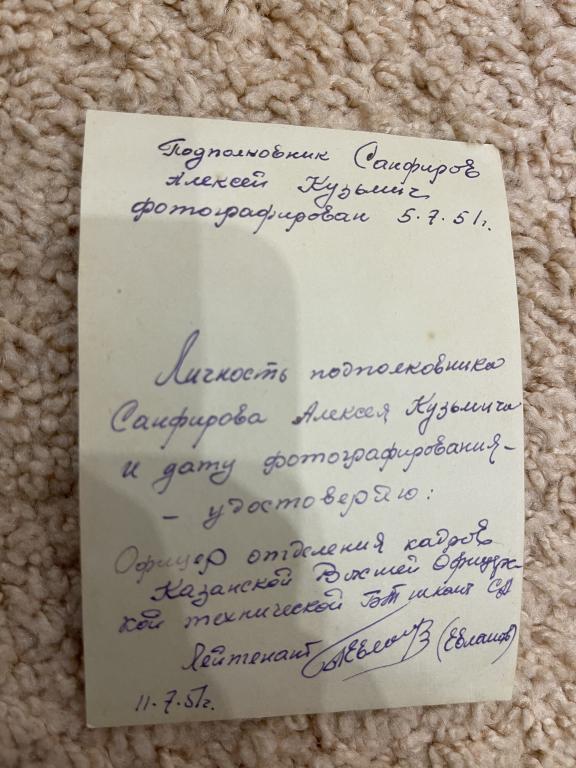 Подполковник Санфиров
Алексей Кузьмич
фотографирован 5.7.51г.
Личность подполковника
Санфирова Алексея Кузьмича
и дату фотографирования –
– удостоверяю:
Офицер отделения кадров
Казанской Высшей Офицерс-
кой технической БТ школы СА
Лейтенант (Евланов)
11.7.51г.